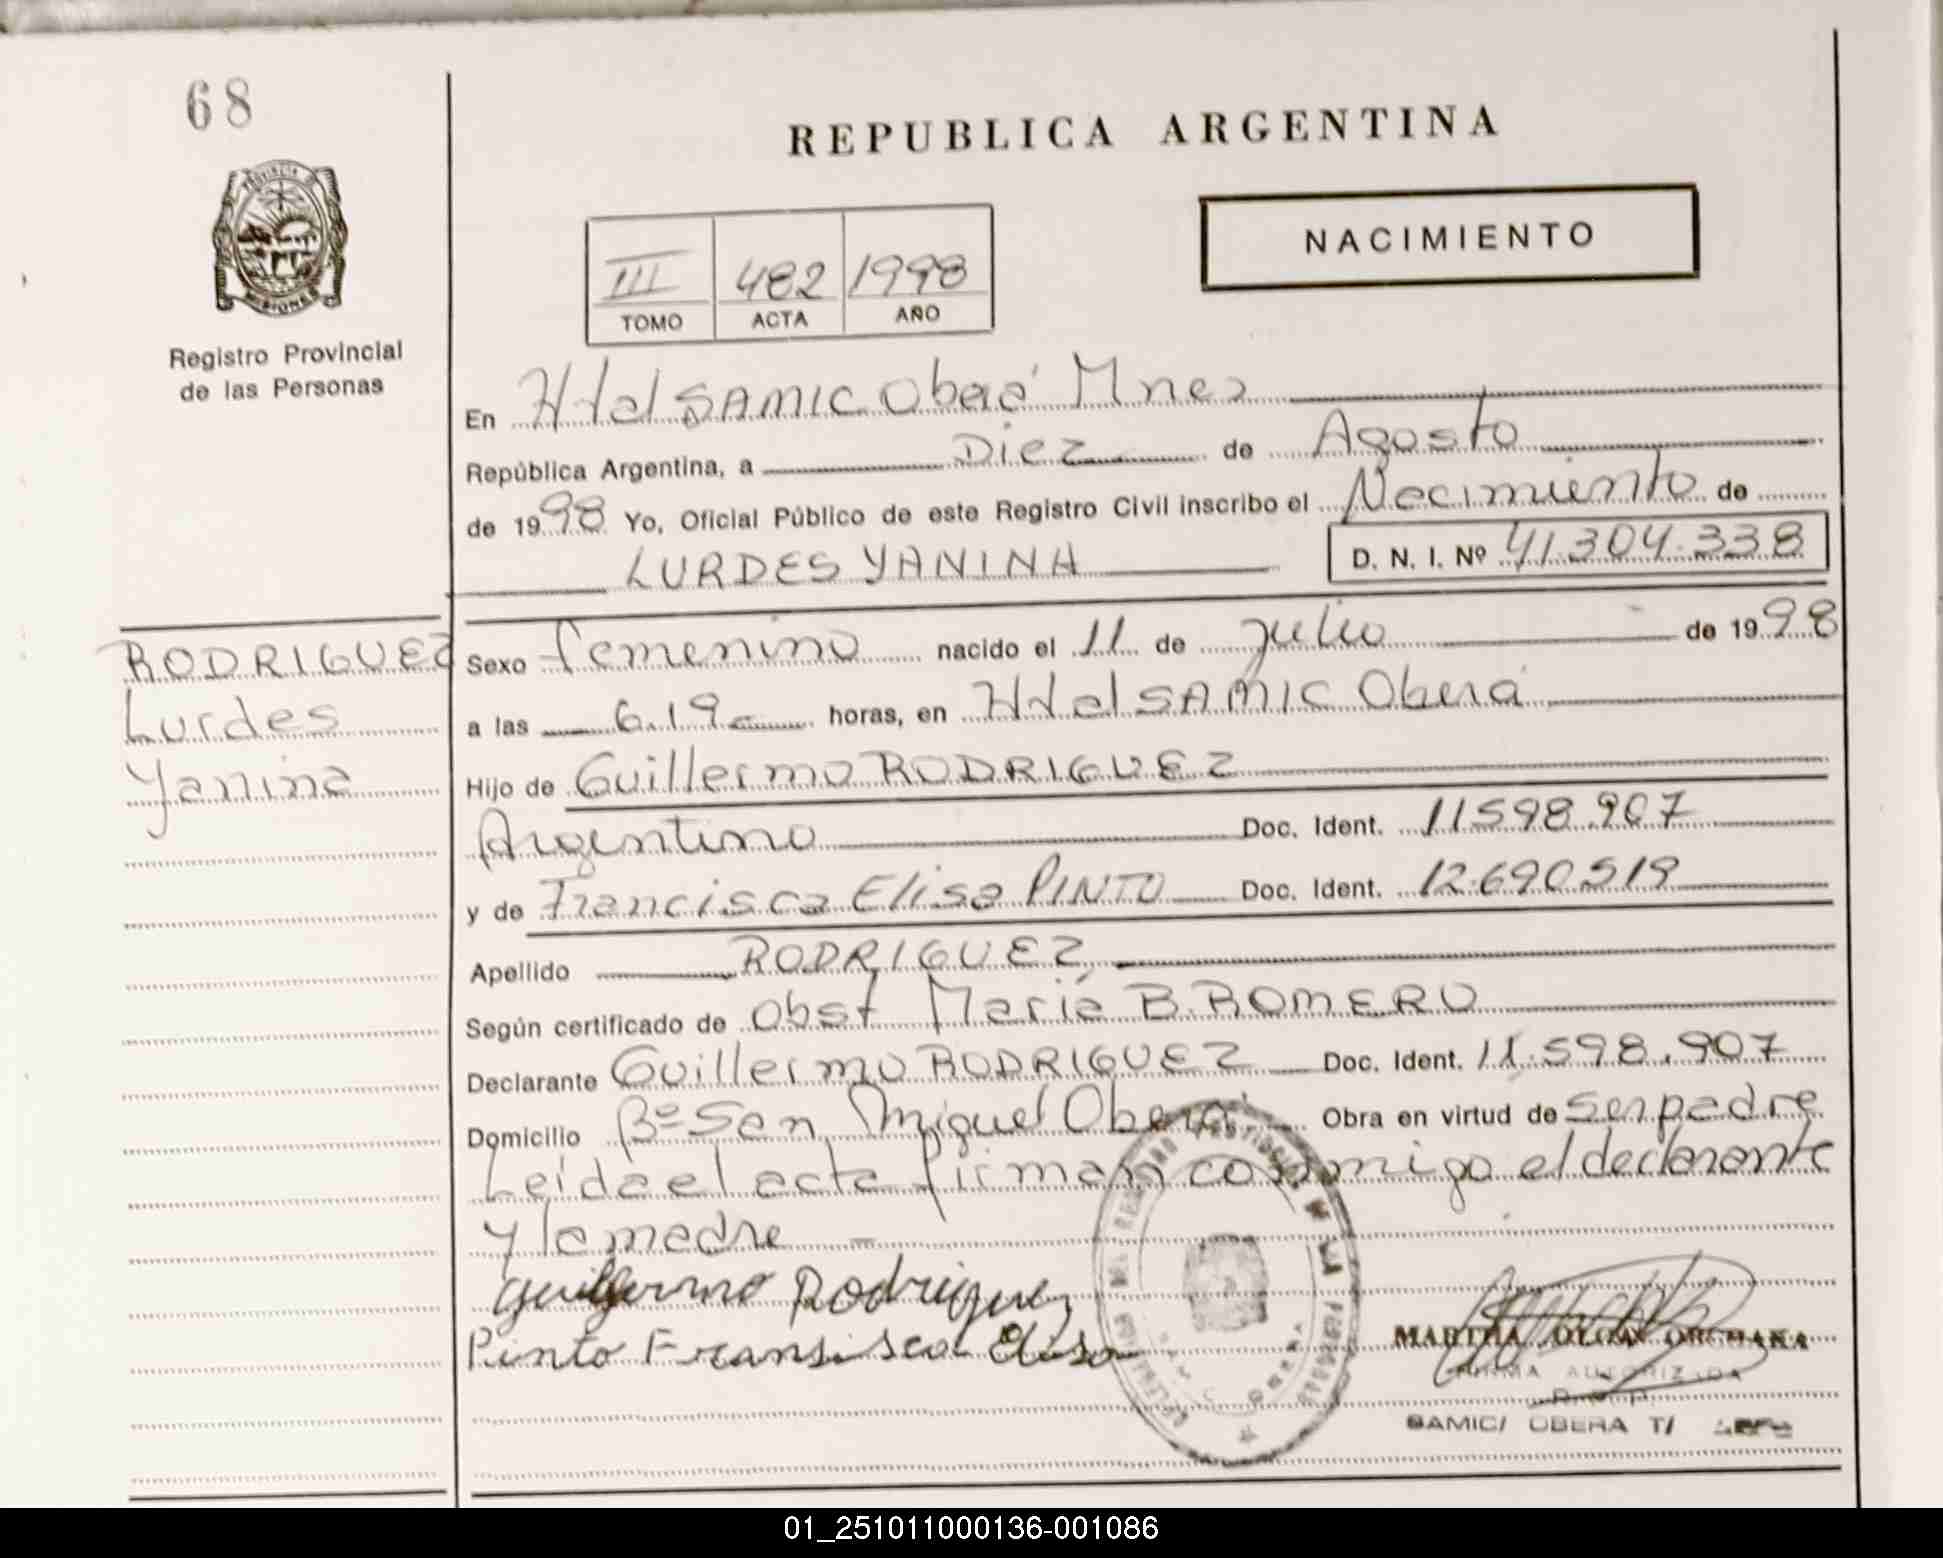 68
REPUBLICA ARGENTINA
NACIMIENTO
III 482 1998
TOMO ACTA AÑO
PROVINCIA DE MISIONES
Registro Provincial
de las Personas
En Htal SAMIC Oberá Mnes
República Argentina, a Diez de Agosto
de 1998 Yo, Oficial Público de este Registro Civil inscribo el Nacimiento de
LURDES YANINA D. N. I. Nº 41.304.338
RODRIGUEZ
Lurdes
Yanina
Sexo femenino nacido el 11 de julio de 1998
a las 6.19 horas, en Htal SAMIC Oberá
Hijo de Guillermo RODRIGUEZ
Argentino Doc. Ident. 11598.907
y de Francisca Elisa PINTO Doc. Ident. 12.690519
Apellido RODRIGUEZ
Según certificado de Obst María B. ROMERO
Declarante Guillermo RODRIGUEZ Doc. Ident. 11.598.907
Domicilio Bº San Miguel Oberá Obra en virtud de ser padre
Leída el acta firman conmigo el declarante
y la madre
Guillermo Rodriguez
Pinto Fransisca Elisa
MARTHA OLGA
FIRMA AUTORIZADA
SAMIC/ OBERA T/
01_251011000136-001086